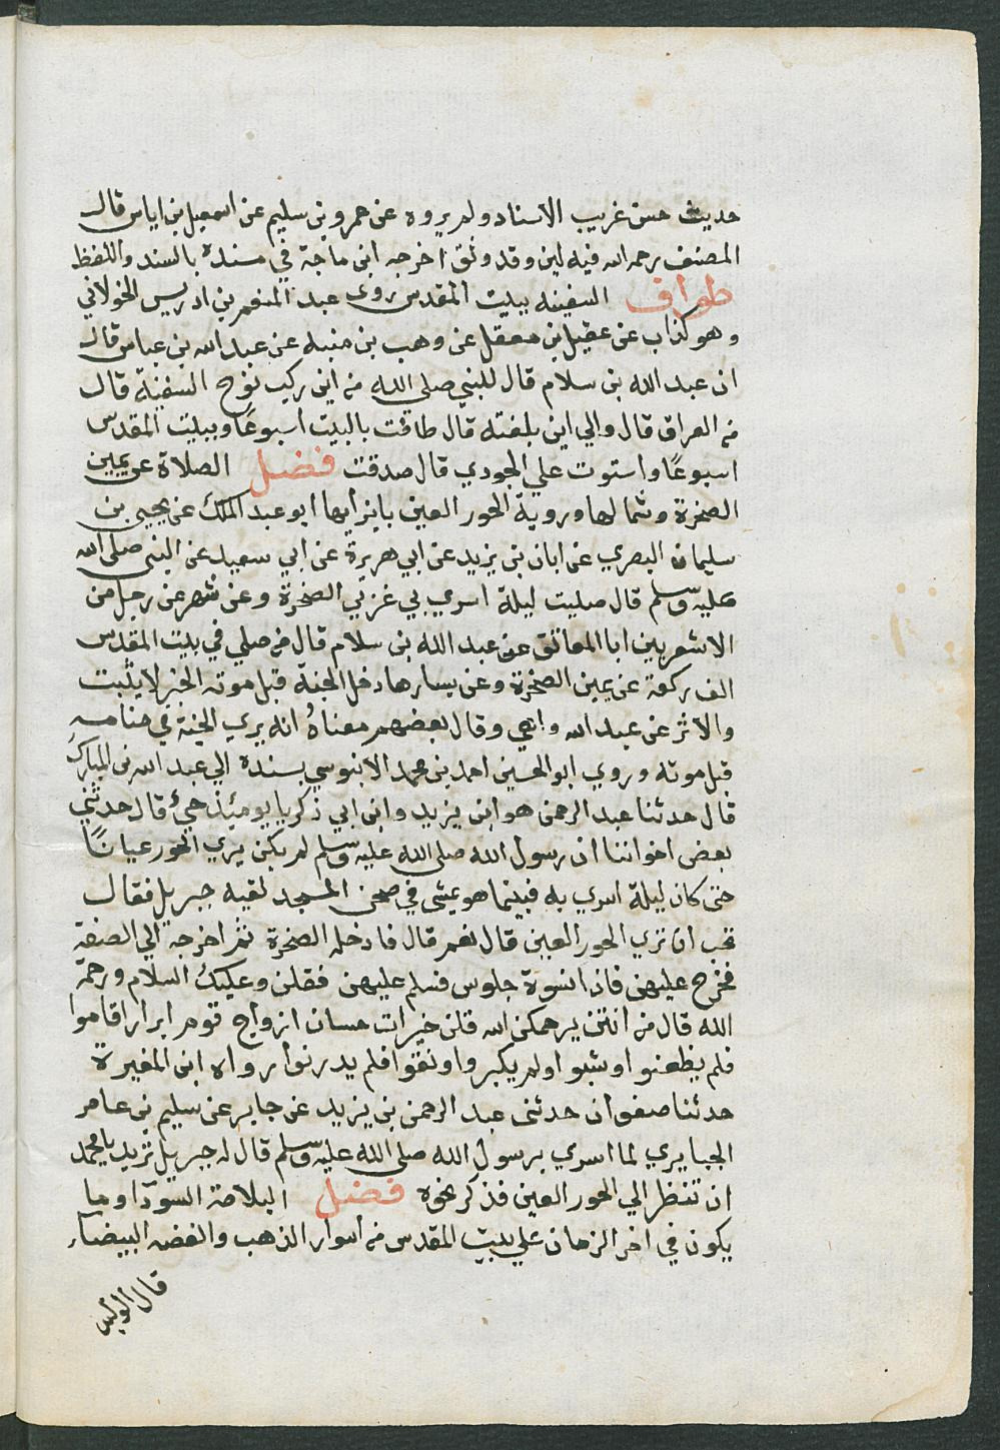 حديث حسن غريب الاسناد ولم يروه عن عمرو بن سليم عن اسمعيل بن اياس قال
المصنف رحمه الله فيه لين وقد وثق اخرجه ابن ماجة في مسنده بالسند واللفظ
طواف السفينه ببيت المقدس روي عبد المنعم بن ادريس الخولاني
وهو كذاب عن عقيل بن معقل عن وهب بن منبه عن عبد الله بن عباس قال
ان عبد الله بن سلام قال للنبي صلى الله من اين ركب نوح السفينة قال
من العراق قال والي اين بلغته قال طافت بالبيت اسبوعًا وببيت المقدس
اسبوعًا واستوت علي الجودي قال صدقت فضل الصلاة عن يمين
الصخرة وشمالها وروية الحور العين بايزائها ابو عبد الملك عن يحيى بن
سليمان البصري عن ابان بن يزيد عن ابي هريرة عن ابي سعيد عن النبي صلى الله
عليه وسلم قال صليت ليلة اسري بي غربي الصخرة وعن شهر عن رجل من
الاشعريين ابا المعانق عن عبد الله بن سلام قال من صلي في بيت المقدس
الف ركعة عن يمين الصخرة وعن يسارها دخل الجنة قبل موته الخبر لا يثبت
والاثر عن عبد الله واهي وقال بعضهم معناهُ انه يري الجنة في منامه
قبل موته وروي ابو الحسين احمد بن محمد الابنوسي بسنده الي عبد الله بن المبارك
قال حدثنا عبد الرحمن هو ابن يزيد وابن ابي زكريا يومئذ حي قال حدثني
بعض اخواننا ان رسول الله صلى الله عليه وسلم لم يكن يري الحور عيانًا
حتى كان ليلة اسري به فبينما هو يمشي في صحن المسجد لقيه جبريل فقال
تحب ان تري الحور العين قال نعم قال فادخله الصخرة ثم اخرجه الي الصفة
فخرج عليهن فاذا نسوة جلوس فسلم عليهن فقلن وعليك السلام ورحمة
الله قال من انتن يرحمكن الله قلن خيرات حسان ازواج قوم ابرار اقاموا
فلم يظعنوا وشبوا ولم يكبروا ونقوا فلم يدرنوا رواه ابن المغيرة
حدثنا صفوان حدثنى عبد الرحمن بن يزيد عن جابر عن سليم بن عامر
الجبايري لما اسري برسول الله صلى الله عليه وسلم قال له جبريل تريد يا محمد
ان تنظر الي الحور العين فذكر نحوه فضل البلاطة السودا وما
يكون في اخر الزمان علي بيت المقدس من اسوار الذهب والفضه البيضاء
قال الوليد